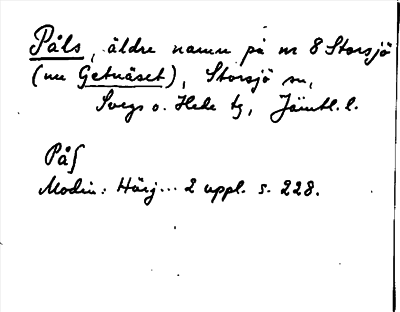 Påls, äldre namn på nr 8 Storsjö
(nu Getnäset), Storsjö sn,
Svegs o. Hede tg, Jämtl. l.
Pål
Modin: Härj... 2 uppl. s. 228.